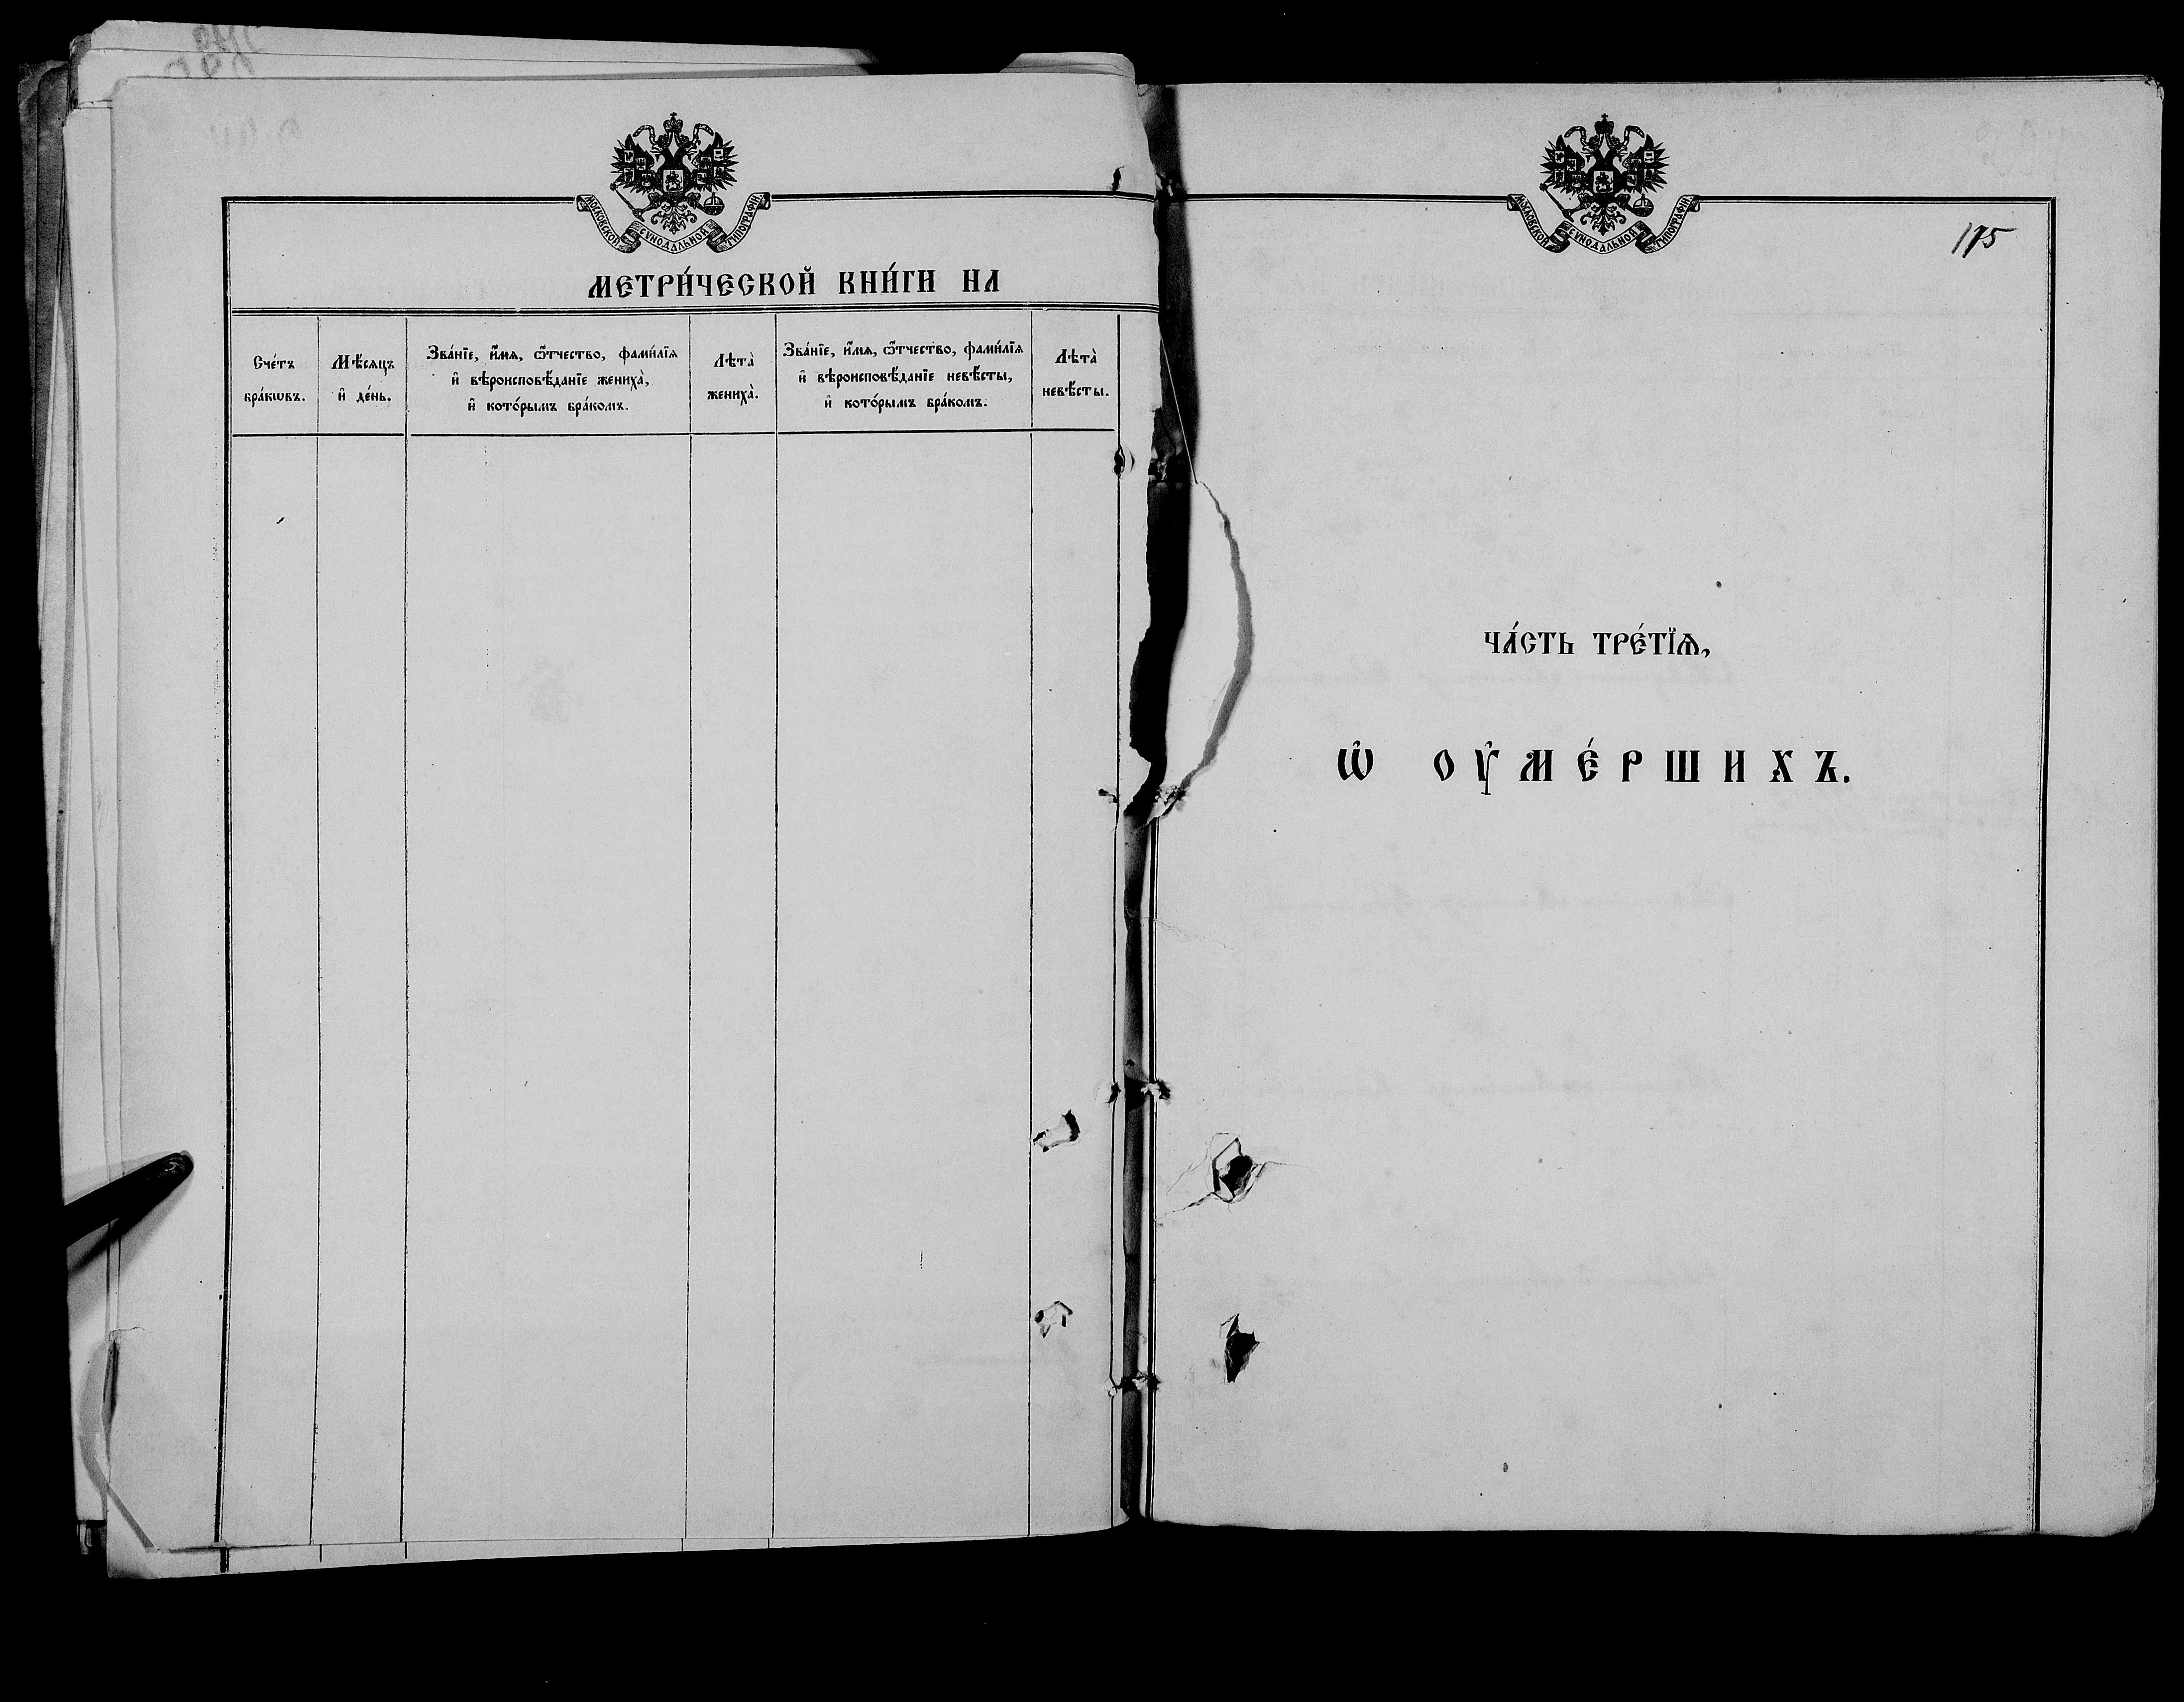 МОСКОВСКОЙ СѴНОДАЛЬНОЙ ТИПОГРАФІИ
МЕТРИ́ЧЕСКОЙ КНИ́ГИ НА
Сче́тъ
бра́кѡвъ.
Мѣ́сяцъ
и҆ де́нь.
Зва́нїе, и҆́мѧ, ѻ҆́тчество, фами́лїѧ
и҆ вѣроисповѣ́данїе жениха̀,
и҆ кото́рымъ бра́комъ.
Лѣта̀
жениха̀.
Зва́нїе, и҆́мѧ, ѻ҆́тчество, фами́лїѧ
и҆ вѣроисповѣ́данїе невѣ́сты,
и҆ кото́рымъ бра́комъ.
Лѣта̀
невѣ́сты.
МОСКОВСКОЙ СѴНОДАЛЬНОЙ ТИПОГРАФІИ
175
ЧА́СТЬ ТРЕ́ТЇѦ,
Ѡ҆ ОУ҆МЕ́РШИХЪ.